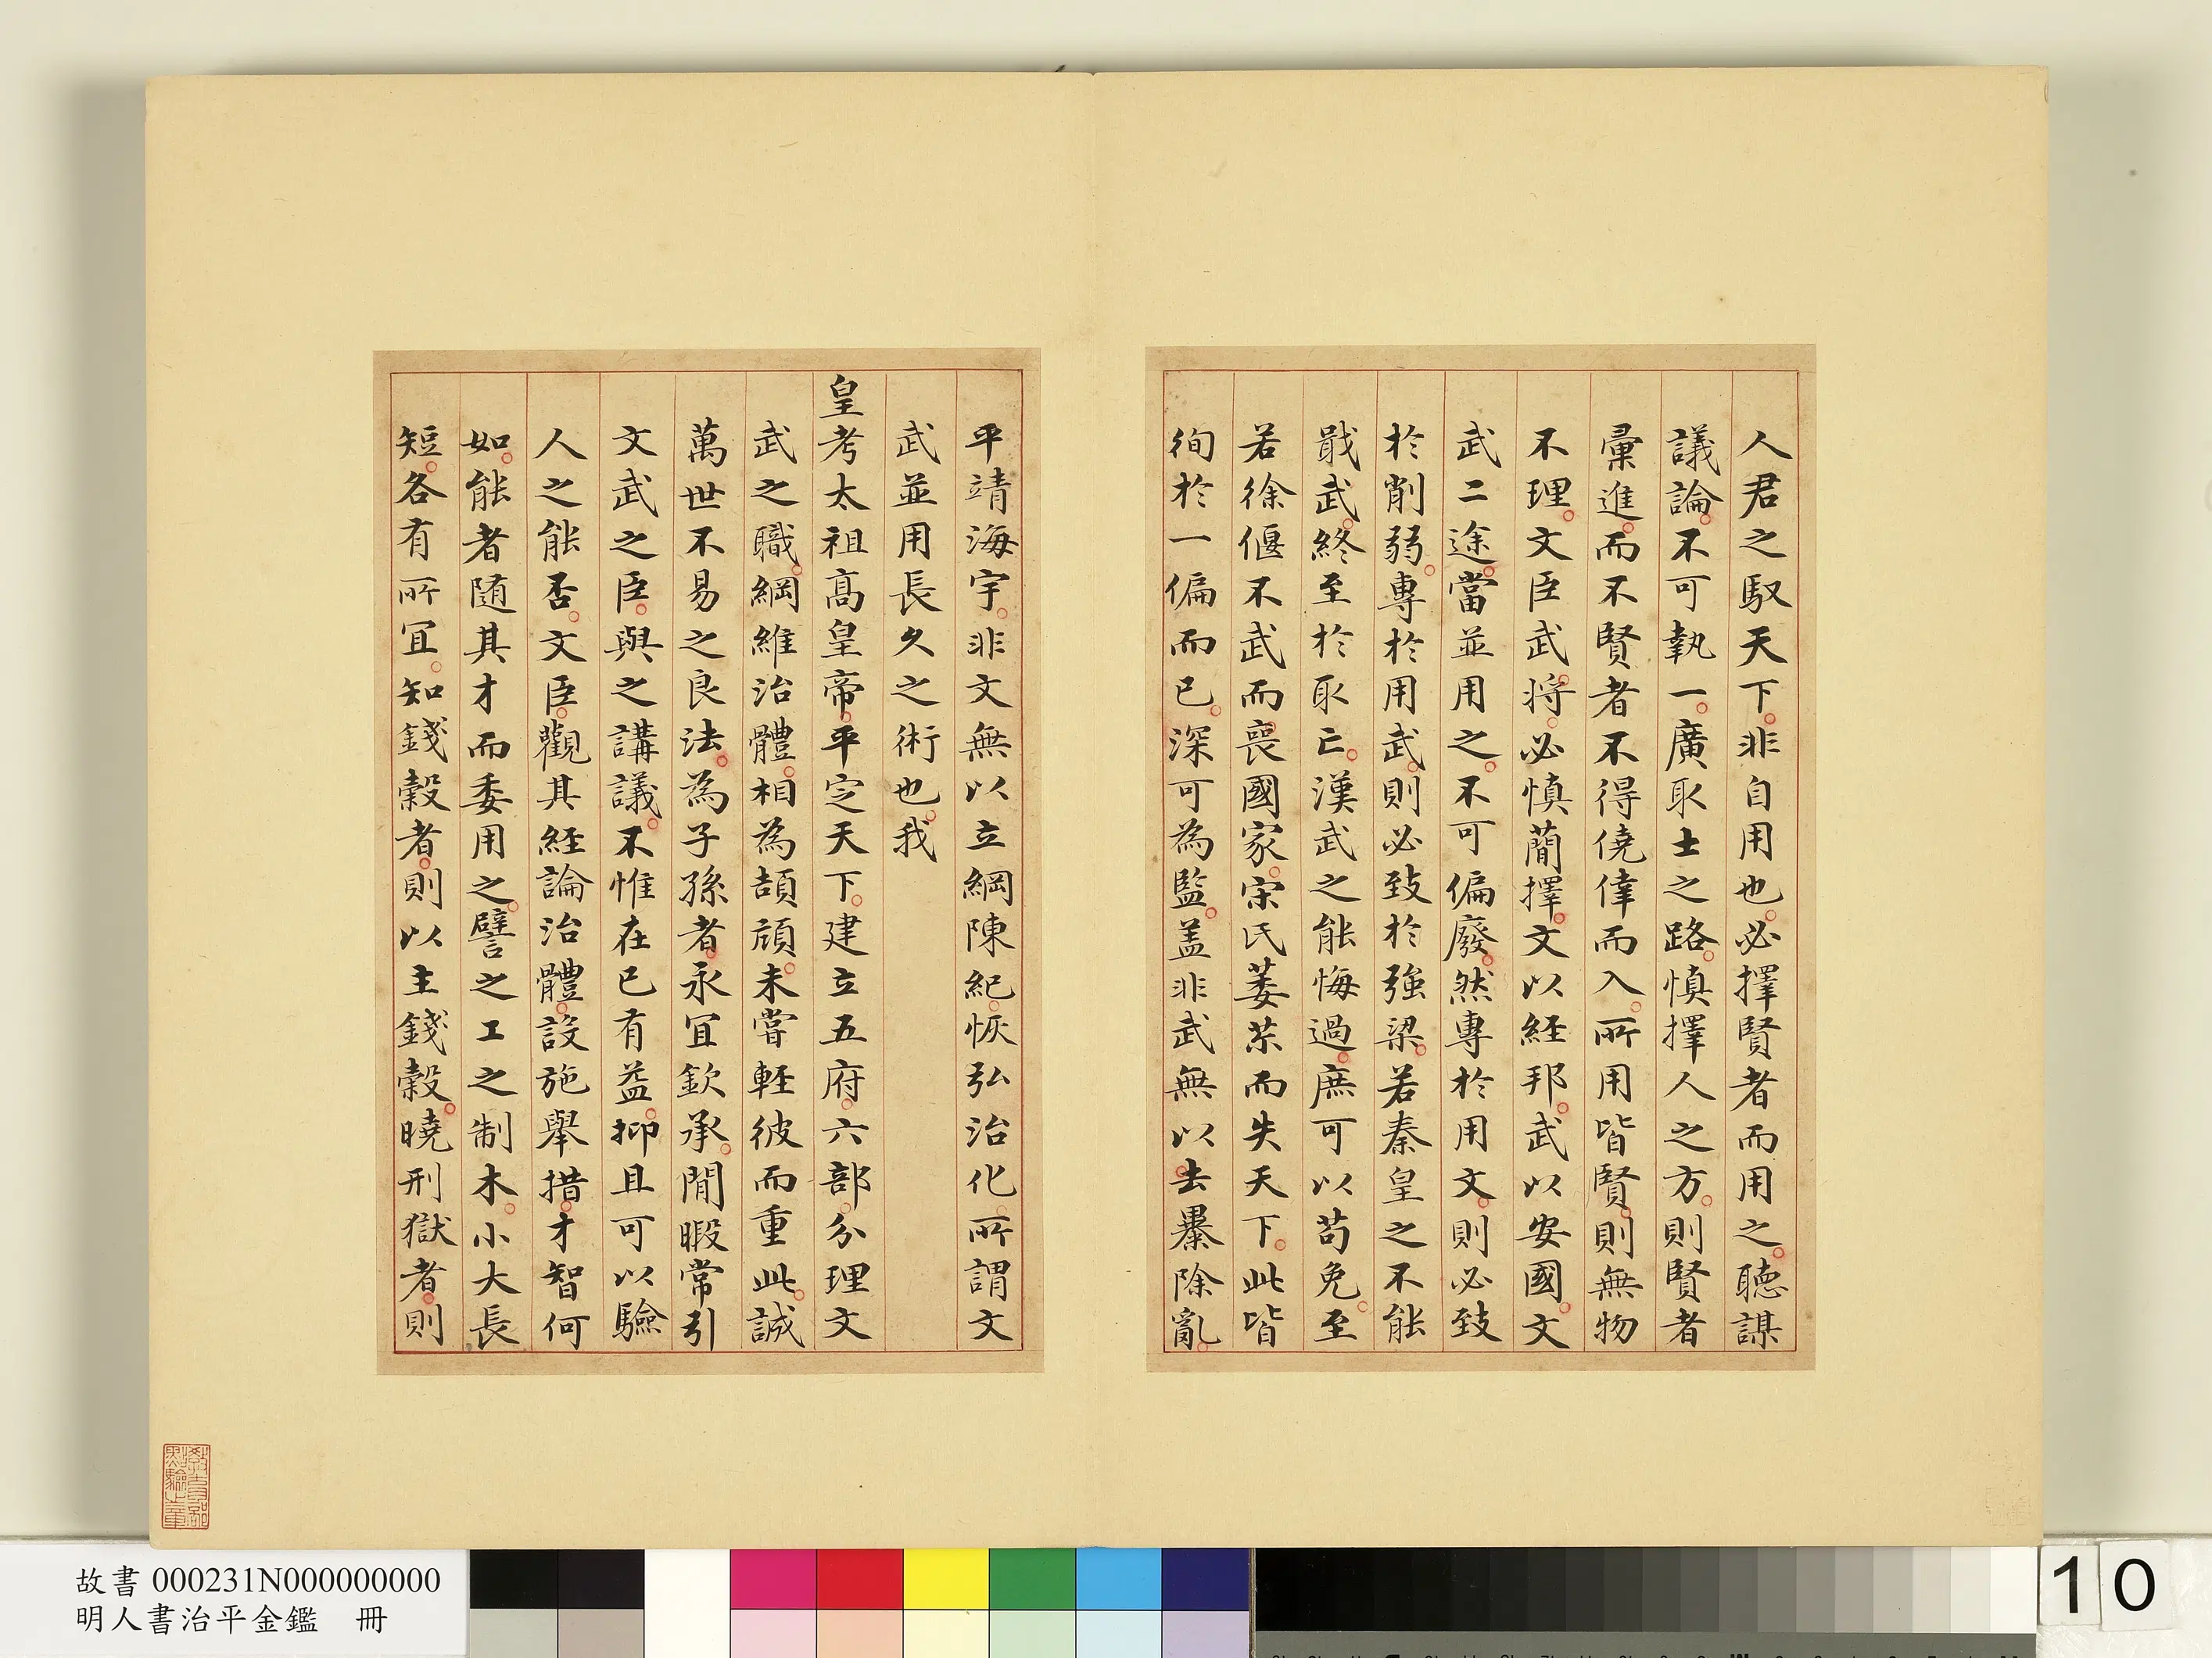 人君之馭天下非自用也必擇賢者而用之聽謀
議論不可執一廣取士之路慎擇人之方則賢者
彙進而不賢者不得僥倖而入所用皆賢則無物
不理文臣武將必慎蕑擇文以經邦武以安國文
武二途當並用之不可偏廢然專於用文則必致
於削弱專於用武則必致於強梁若秦皇之不能
戢武終至於取亡漢武之能悔過庶可以苟免至
若徐偃不武而喪國家宋氏萎苶而失天下此皆
徇於一偏而已深可為監盖非武無以去暴除亂
平靖海宇非文無以立綱陳紀恢弘治化所謂文
武並用長久之術也我
皇考太祖高皇帝平定天下建立五府六部分理文
武之職綱維治體相為頡頏未嘗輕彼而重此誠
萬世不易之良法為子孫者永宜欽承閒暇常引
文武之臣與之講議不惟在已有益抑且可以驗
人之能否文臣觀其經論治體設施舉措才智何
如能者隨其才而委用之譬之工之制木小大長
短各有所宜知錢穀者則以主錢穀曉刑獄者則
故書 000231N000000000
明人書治平金鑑 冊
10